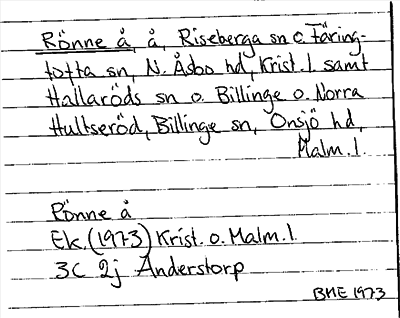 Rönne å, å, Riseberga sn o. Färing-
tofta sn, N. Åsbo hd, Krist. l. samt
Hallaröds sn o. Billinge o. Norra
Hultseröd, Billinge sn, Onsjö hd,
Malm. l.
Rönne å
Ek. (1973) Krist. o. Malm. l.
3C 2j Anderstorp
BME 1973